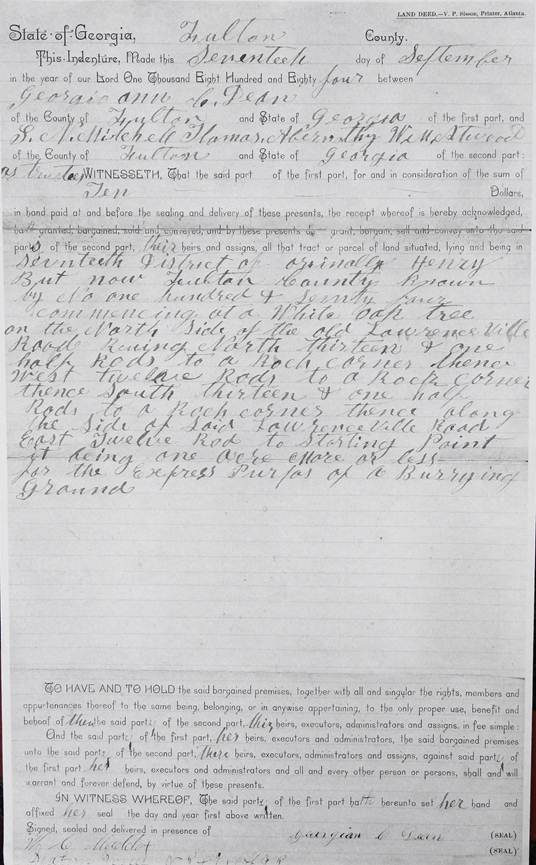 LAND DEED.—V. P. Sisson, Printer, Atlanta.
State of Georgia, Fulton County.
This Indenture, Made this Seventeeth day of September
in the year of our Lord One Thousand Eight Hundred and Eighty four between
Georgia ann C. Dean
of the County of Fulton and State of Georgia of the first part, and
S. N. Mitchell Thomas Abernathy W. M. Atwood
of the County of Fulton and State of Georgia of the second part:
as trustees WITNESSETH, That the said part of the first part, for and in consideration of the sum of
Ten Dollars,
in hand paid at and before the sealing and delivery of these presents, the receipt whereof is hereby acknowledged,
ha granted, bargained, sold and conveyed, and by these presents do grant, bargain, sell and convey unto the said
parts of the second part, their heirs and assigns, all that tract or parcel of land situated, lying and being in
Seventeeth District of orinally Henry
But now Fulton County Known
by No one hundred & Seventy four
commencing at a White oak tree
on the North Side of the old Lawrenceville
Road Runing North thirteen & one
half Rods to a Rock corner thence
West twelve Rods to a Rock Corner
thence South thirteen & one half
Rods to a Rock corner thence along
the Side of Said Lawrenceville Road
East Twelve Rod to Starting Point
it being one acre More or less
for the Express Purpas of a Burrying
Ground
TO HAVE AND TO HOLD the said bargained premises, together with all and singular the rights, members and
appurtenances thereof to the same being, belonging, or in anywise appertaining, to the only proper use, benefit and
behoof of the said party of the second part, heirs, executors, administrators and assigns, in fee simple:
And the said party of the first part, her heirs, executors and administrators, the said bargained premises
unto the said party of the second part, there heirs, executors, administrators and assigns, against said party of
the first part her heirs, executors and administrators and all and every other person or persons, shall and will
warrant and forever defend, by virtue of these presents.
IN WITNESS WHEREOF, The said party of the first part hath hereunto set her hand and
affixed her seal the day and year first above written.
Signed, sealed and delivered in presence of Georgian C Dean (SEAL)
W. C. Maddox (SEAL)